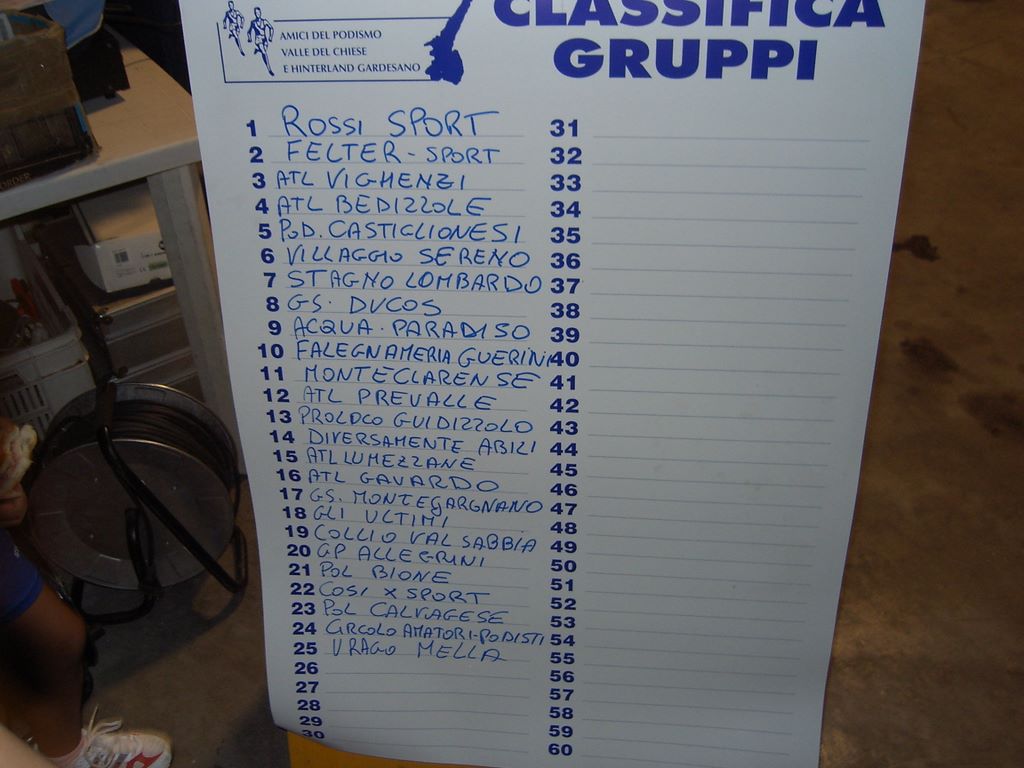 AMICI DEL PODISMO
VALLE DEL CHIESE
E HINTERLAND GARDESANO
CLASSIFICA
GRUPPI
1 ROSSI SPORT
2 FELTER - SPORT
3 ATL VIGHENZI
4 ATL BEDIZZOLE
5 POD. CASTIGLIONESI
6 VILLAGGIO SERENO
7 STAGNO LOMBARDO
8 GS. DUCOS
9 ACQUA. PARADISO
10 FALEGNAMERIA GUERINI
11 MONTECLARENSE
12 ATL PREVALLE
13 PROLOCO GUIDIZZOLO
14 DIVERSAMENTE ABILI
15 ATL LUMEZZANE
16 ATL GAVARDO
17 GS. MONTEGARGNANO
18 GLI ULTIMI
19 COLLIO VAL SABBIA
20 GP ALLEGRINI
21 POL BIONE
22 COSI X SPORT
23 POL CALVAGESE
24 CIRCOLO AMATORI-PODISTI
25 URAGO MELLA
26
27
28
29
30
31
32
33
34
35
36
37
38
39
40
41
42
43
44
45
46
47
48
49
50
51
52
53
54
55
56
57
58
59
60